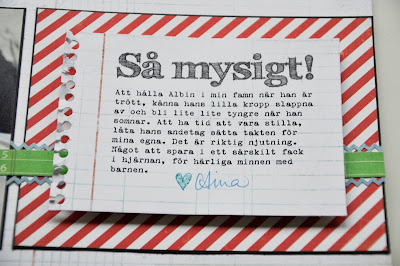 Så mysigt!
Att hålla Albin i min famn när han är
trött, känna hans lilla kropp slappna
av och bli lite lite tyngre när han
somnar. Att ha tid att vara stilla,
låta hans andetag sätta takten för
mina egna. Det är riktig njutning.
Något att spara i ett särskilt fack
i hjärnan, för härliga minnen med
barnen.